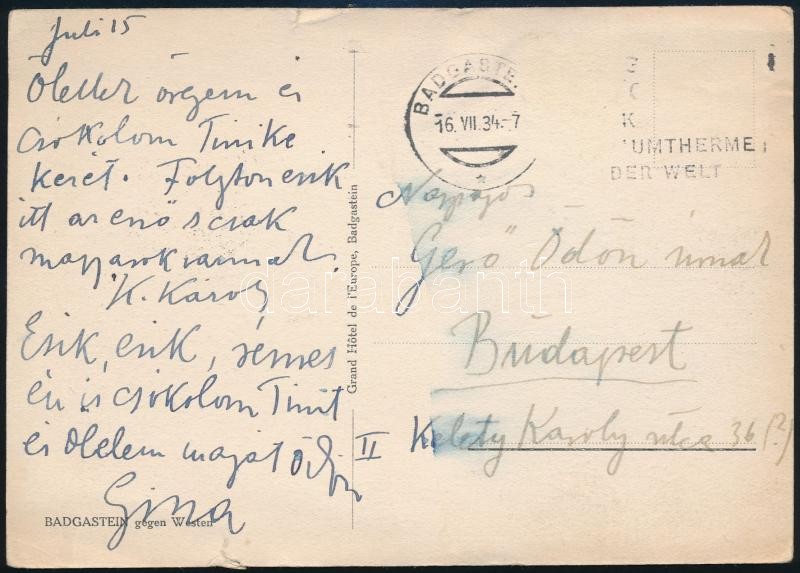 Juli 15
Ölellek öregem és
csókolom Tinike
kezét. Folyton esik
itt az eső s csak
magyarok vannak
K. Károly
Esik, esik, rémes
én is csókolom Tinit
és ölelem magát Ödön
Gina
BADGASTEIN gegen Westen
Grand Hôtel de l'Europe, Badgastein
BADGASTE
16. VII. 34.-7
K
UMTHERME
DER WELT
Gerő Ödön úrnak
Budapest
II Kelety Károly utca 36 (?)
darabanth